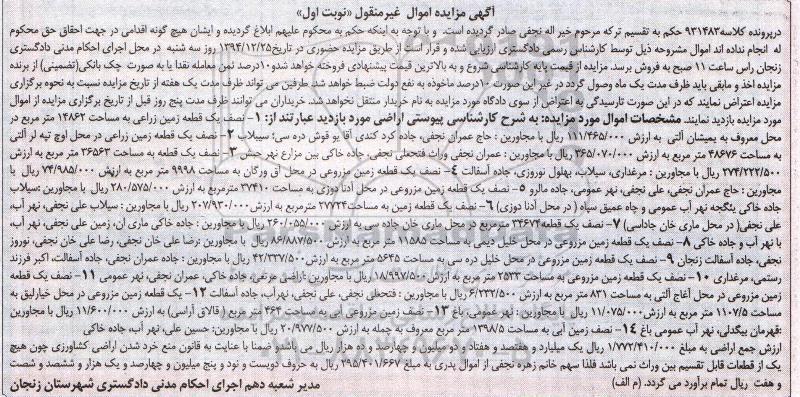 آگهی مزایده اموال غیرمنقول «نوبت اول»
درپرونده کلاسه ۹۳۱۴۸۳ حکم به تقسیم ترکه مرحوم خیر اله نجفی صادر گردیده است. و با توجه به اینکه حکم به محکوم علیهم ابلاغ گردیده و ایشان هیچ گونه اقدامی در جهت احقاق حق محکوم
له انجام نداده اند اموال مشروحه ذیل توسط کارشناس رسمی دادگستری ارزیابی شده و قرار است از طریق مزایده حضوری در تاریخ ۱۳۹۴/۱۲/۲۵ روز سه شنبه در محل اجرای احکام مدنی دادگستری
زنجان راس ساعت ۱۱ صبح به فروش برسد. مزایده از قیمت پایه کارشناسی شروع و به بالاترین قیمت پیشنهادی فروخته خواهد شد ۱۰درصد ثمن معامله نقدا یا به صورت چک بانکی(تضمینی) از برنده
مزایده اخذ و مابقی باید ظرف مدت یک ماه وصول گردد در غیر این صورت ۱۰درصد ماخوذه به نفع دولت ضبط خواهد شد. طرفین می تواند ظرف مدت یک هفته از تاریخ مزایده نسبت به نحوه برگزاری
مزایده اعتراض نمایند که در این صورت تارسیدگی به اعتراض از سوی دادگاه مورد مزایده به نام خریدار منتقل نخواهد شد. خریداران می توانند ظرف مدت پنج روز قبل از تاریخ برگزاری مزایده از اموال
مورد مزایده بازدید نمایند. مشخصات اموال مورد مزایده: به شرح کارشناسی پیوستی اراضی مورد بازدید عبارتند از: ۱- نصف یک قطعه زمین زراعی به مساحت ۱۴۸۶۲ متر مربع در
محل معروف به یمیشان آلتی به ارزش ۱۱۱/۴۶۵/۰۰۰ ریال با مجاورین : حاج عمران نجفی، جاده کرد کندی آقا یو قوش دره سی؛ سیبلاب ۲- نصف یک قطعه زمین زراعی در محل اوچ تپه لر آلتی
به مساحت ۴۸۶۷۶ متر مربع به ارزش ۳۶۵/۰۷۰/۰۰۰ ریال با مجاورین : عمران نجفی وراث فتحعلی نجفی، جاده خاکی بین مزارع نهر جیش ۳- نصف یک قطعه به مساحت ۳۶۵۶۳ متر مربع به ارزش
۲۷۴/۲۲۲/۵۰۰ ریال با مجاورین : مرغداری، سیلاب، بهلول نوروزی، جاده آسفالت ۴- نصف یک قطعه زمین مزروعی در محل آق ورگان به مساحت ۹۹۹۸ متر مربع به ارزش ۷۴/۹۸۵/۰۰۰ ریال با
مجاورین : حاج عمران نجفی، علی نجفی، نهر عمومی، جاده مالرو ۵- نصف یک قطعه زمین مزروعی در محل آدنا دوزی به مساحت ۳۷۴۱۰ مترمربع به ارزش ۲۸۰/۵۷۵/۰۰۰ ریال با مجاورین :سیلاب
جاده خاکی ینگجه نهر آب عمومی و چاه عمیق سپاه ( در محل آدنا دوزی) ۶- نصف یک قطعه زمین به مساحت ۲۷۷۲۴ مترمربع به ارزش ۲۰۷/۹۳۰/۰۰۰ ریال با مجاورین : وراث علی نجفی، نهر آب،
علی نجفی( در محل ماری خان جاداسی) ۷- نصف یک قطعه ۳۴۶۷۴ مترمربع در محل ماری خان جاده سی به ارزش ۲۶۰/۰۵۵/۰۰۰ ریال با مجاورین : جاده خاکی ماری آن، زمین علی نجفی، نهر آب،
با نهر آب و جاده خاکی ۸- نصف یک قطعه زمین مزروعی در محل خلیل دیمی به مساحت ۱۱۵۸۵ متر مربع به ارزش ۸۶/۸۸۷/۵۰۰ ریال با مجاورین :رضا علی خان نجفی، رضا علی خان نجفی، نوروز
نجفی، جاده آسفالت زنجان ۹- نصف یک قطعه زمین مزروعی در محل خلیل دره سی به مساحت ۵۶۴۵ متر مربع به ارزش ۴۲/۳۳۷/۵۰۰ ریال با مجاورین : جاده عمران نجفی، جاده آسفالت، اکبر فرزند
رستمی، مرغداری ۱۰- نصف یک قطعه زمین مزروعی به مساحت ۲۵۳۳ متر مربع به ارزش ۱۸/۹۹۷/۵۰۰ ریال با مجاورین :اراضی مرغی، جاده خاکی، عمران نجفی، نهر عمومی ۱۱- نصف یک قطعه
زمین مزروعی در محل آغاج آلتی به مساحت ۸۳۱ متر مربع به ارزش ۶/۲۳۲/۵۰۰ ریال با مجاورین : فتحعلی نجفی، علی نجفی، نهرآب، جاده آسفالت ۱۲- یک قطعه زمین مزروعی در محل خیارلیق به
مساحت ۱۱۰۷/۵ متر مربع به ارزش ۱۱/۰۷۵/۰۰۰ ریال با مجاورین : نهر عمومی، باغ ۱۳- نصف زمین مزروعی به مساحت ۴۶۴ متر مربع ( قالاق آراسی) به ارزش ۱۱/۶۰۰/۰۰۰ ریال با مجاورین
:قهرمان بیگدلی، نهر آب عمومی باغ ۱۴- نصف زمین آبی به مساحت ۱۳۹۸/۵ متر مربع معروف به چمله به ارزش ۲۰/۹۷۷/۵۰۰ ریال با مجاورین: حسین علی، نهر آب، جاده خاکی
ارزش جمع اراضی به مبلغ ۱/۷۷۲/۴۱۰/۰۰۰ ریال یک میلیارد و هفتصد و هفتاد و دو میلیون و چهارصد و ده هزار ریال می باشد. ضمنا با عنایت به قانون منع خرد شدن اراضی کشاورزی چون هیچ
یک از قطعات قابل تقسیم بین وراث نمی باشد فلذا سهم خانم زهره نجفی از اموال پدری به مبلغ ۲۹۵/۴۰۱/۶۶۷ ریال به حروف دویست و نود و پنج میلیون و چهارصد و یک هزار و ششصد و شصت
و هفت ریال تمام برآورد می گردد. (م الف) مدیر شعبه دهم اجرای احکام مدنی دادگستری شهرستان زنجان